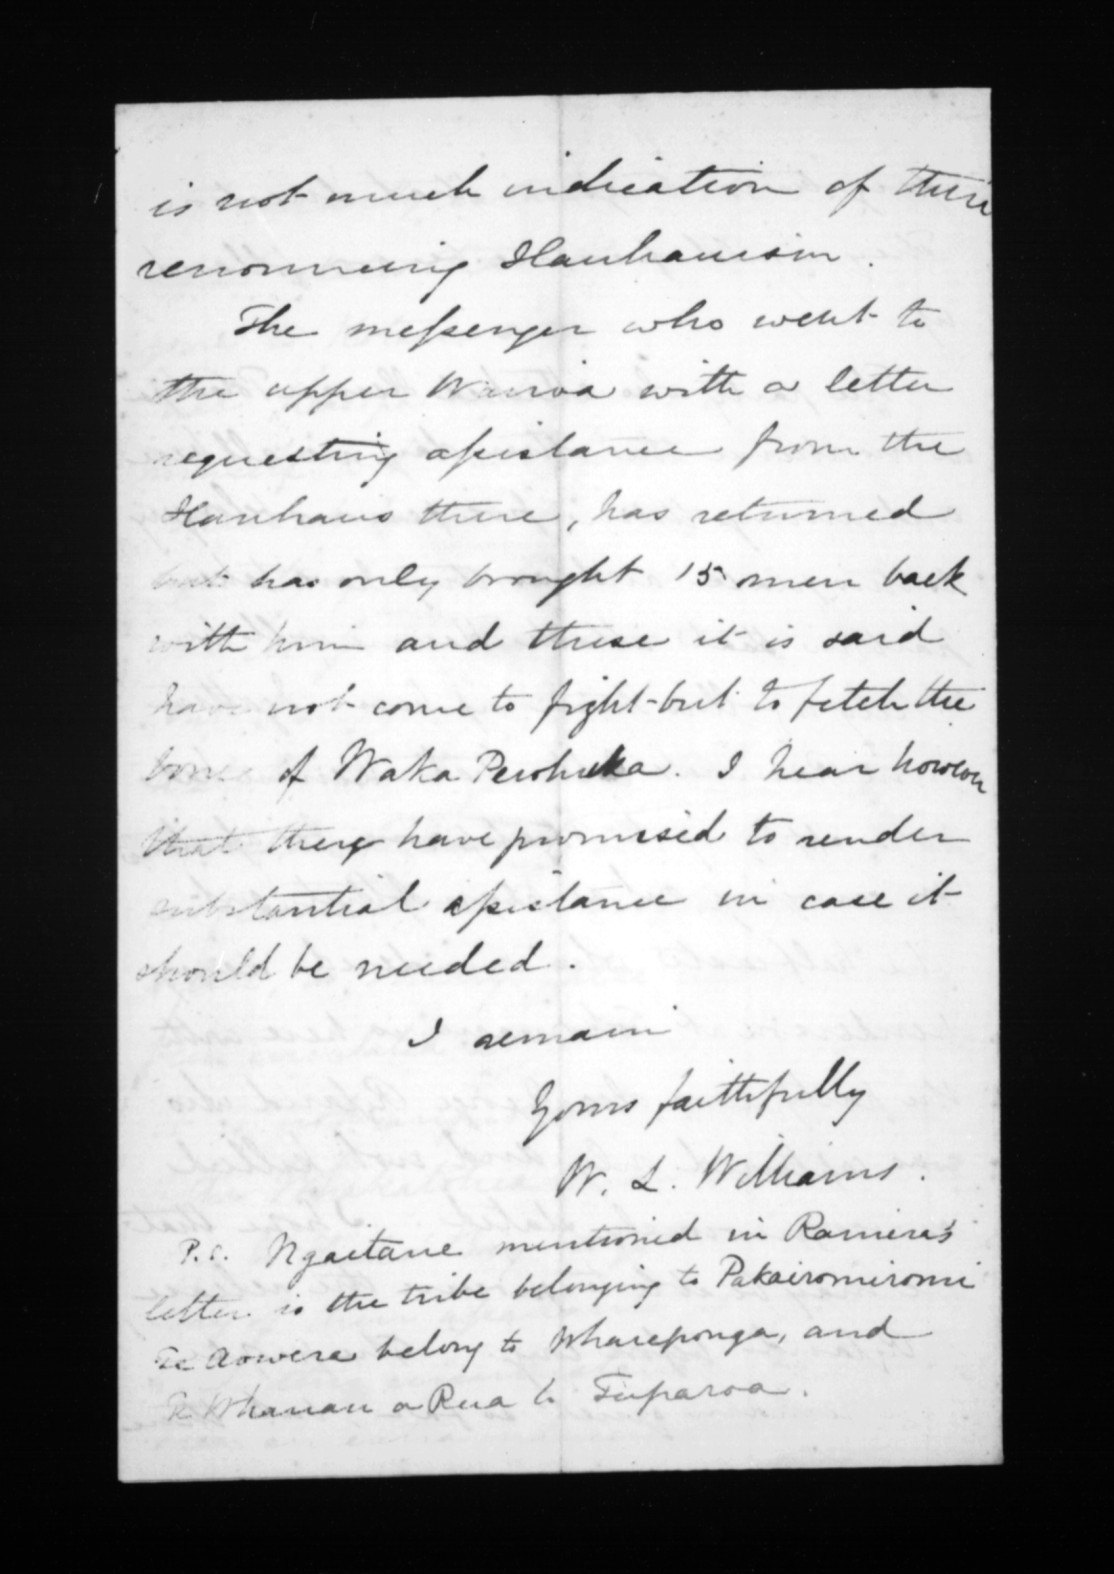 is not much indication of their
renouncing Hauhauism.
The messenger who went to
the upper Wairoa with a letter
requesting assistance from the
Hauhaus there, has returned
but has only brought 15 men back
with him and these it is said
have not come to fight but to fetch the
bones of Waka Peruhuka. I hear however
that they have promised to render
substantial assistance in case it
should be needed.
I remain
Yours faithfully
W. L. Williams.
P.S. Ngaitane mentioned in Raniera's
letter is the tribe belonging to Pakairomiromi
Te Aowera belong to Whareponga, and
Te Whanau a Rua to Tuparoa.